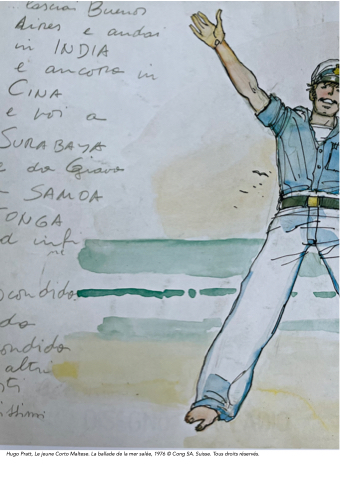 lascia Buenos
Aires e andai
in INDIA
e ancora in
CINA
e poi a
SURABAYA
e da Giava
SAMOA
TONGA
infi
ne
condido
altri
issimi
Hugo Pratt, Le jeune Corto Maltese. La ballade de la mer salée, 1976 © Cong SA. Suisse. Tous droits réservés.